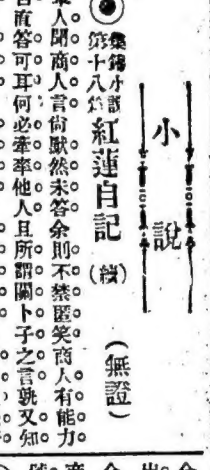 小說
集錦小說
第十八篇
紅蓮自記
(續)
(無證)
人聞商人言尙默然未答余則不禁匿笑商人有能力
直答可耳何必牽率他人且所謂關卜子之言孰又知